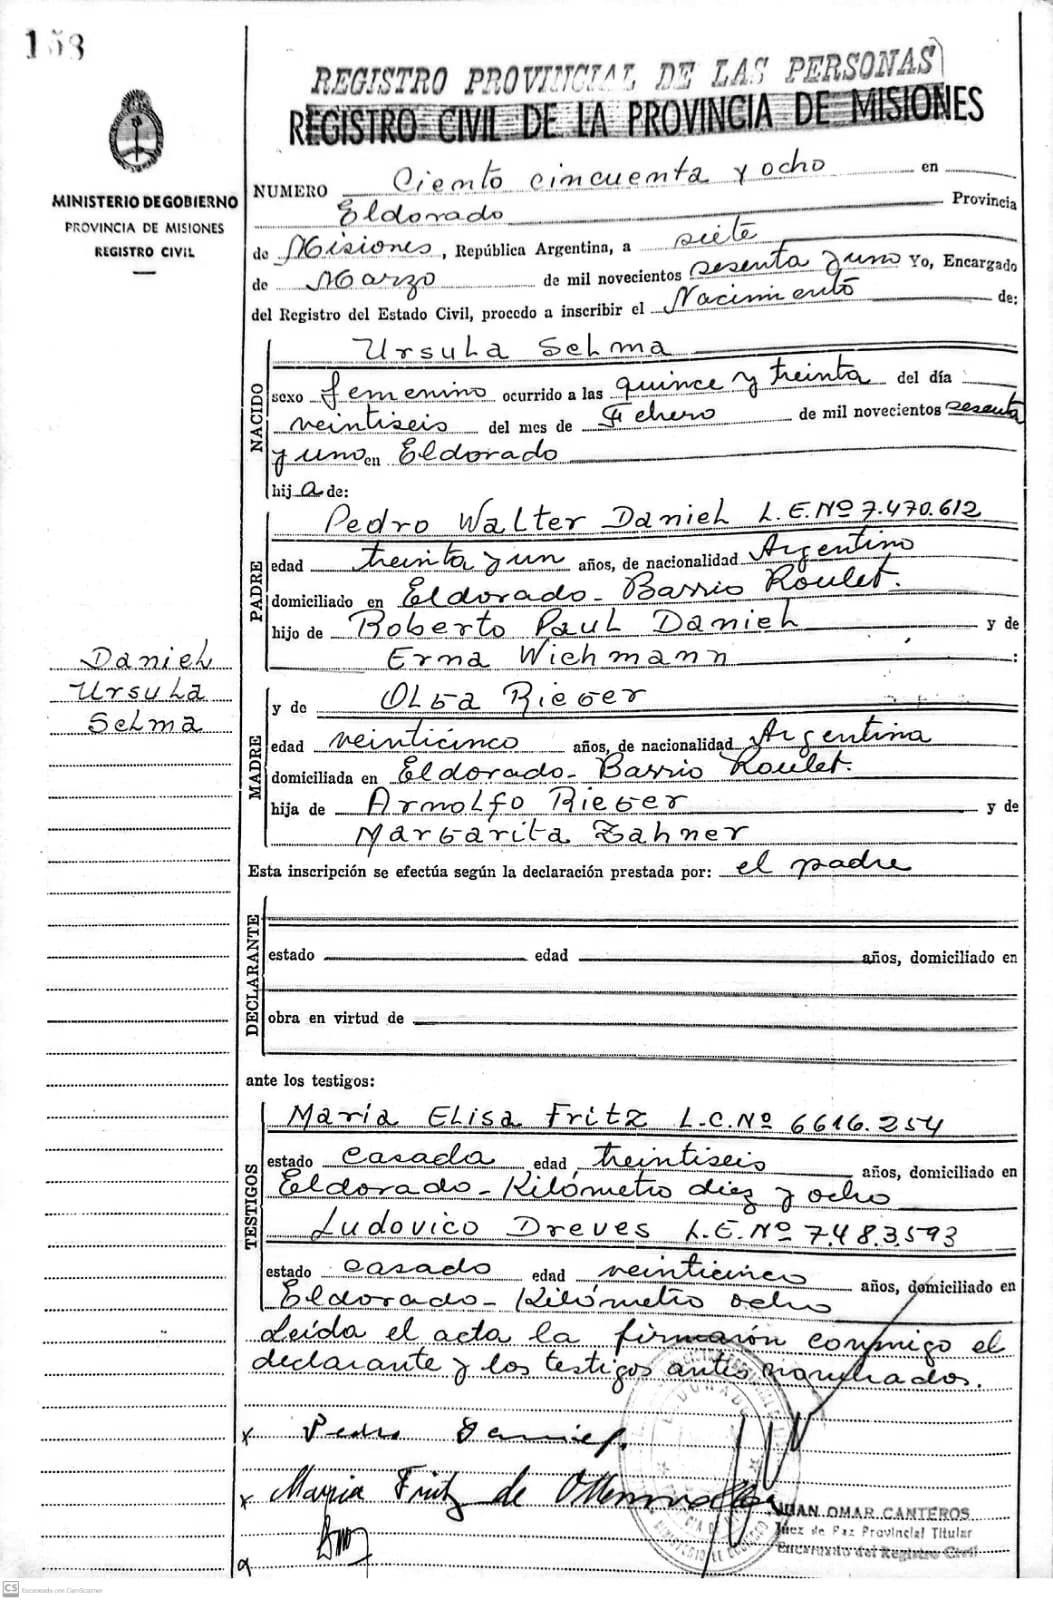 158
REGISTRO PROVINCIAL DE LAS PERSONAS
REGISTRO CIVIL DE LA PROVINCIA DE MISIONES
MINISTERIO DE GOBIERNO
PROVINCIA DE MISIONES
REGISTRO CIVIL
NUMERO Ciento cincuenta y ocho en
Eldorado Provincia
de Misiones, República Argentina, a siete
de Marzo de mil novecientos sesenta y uno Yo, Encargado
del Registro del Estado Civil, procedo a inscribir el Nacimiento de:
NACIDO
Ursula Selma
sexo femenino ocurrido a las quince y treinta del día
veintiseis del mes de Febrero de mil novecientos sesenta
y uno en Eldorado
hij a de:
PADRE
Pedro Walter Daniel L.E.Nº 7.470.612
edad treinta y un años, de nacionalidad Argentino
domiciliado en Eldorado - Barrio Roulet.
hijo de Roberto Paul Daniel y de
Erna Wichmann :
Daniel
Ursula
Selma
MADRE
y de Olga Rieger
edad veinticinco años, de nacionalidad Argentina
domiciliada en Eldorado - Barrio Roulet.
hija de Arnolfo Rieger y de
Margarita Zahner
Esta inscripción se efectúa según la declaración prestada por: el padre
DECLARANTE
estado edad años, domiciliado en
obra en virtud de
ante los testigos:
TESTIGOS
María Elisa Fritz L.C.Nº 6616.254
estado casada edad treintiseis años, domiciliado en
Eldorado - Kilómetro diez y ocho
Ludovico Dreves L.E.Nº 7.483.593
estado casado edad veinticinco años, domiciliado en
Eldorado - Kilómetro ocho
Leída el acta la firmarón conmigo el
declarante y los testigos antes nombrados.
x Pedro Daniel
x Maria Fritz de
JUAN OMAR CANTEROS
Juez de Paz Provincial Titular
Encargado del Registro Civil
CS Escaneado con CamScanner